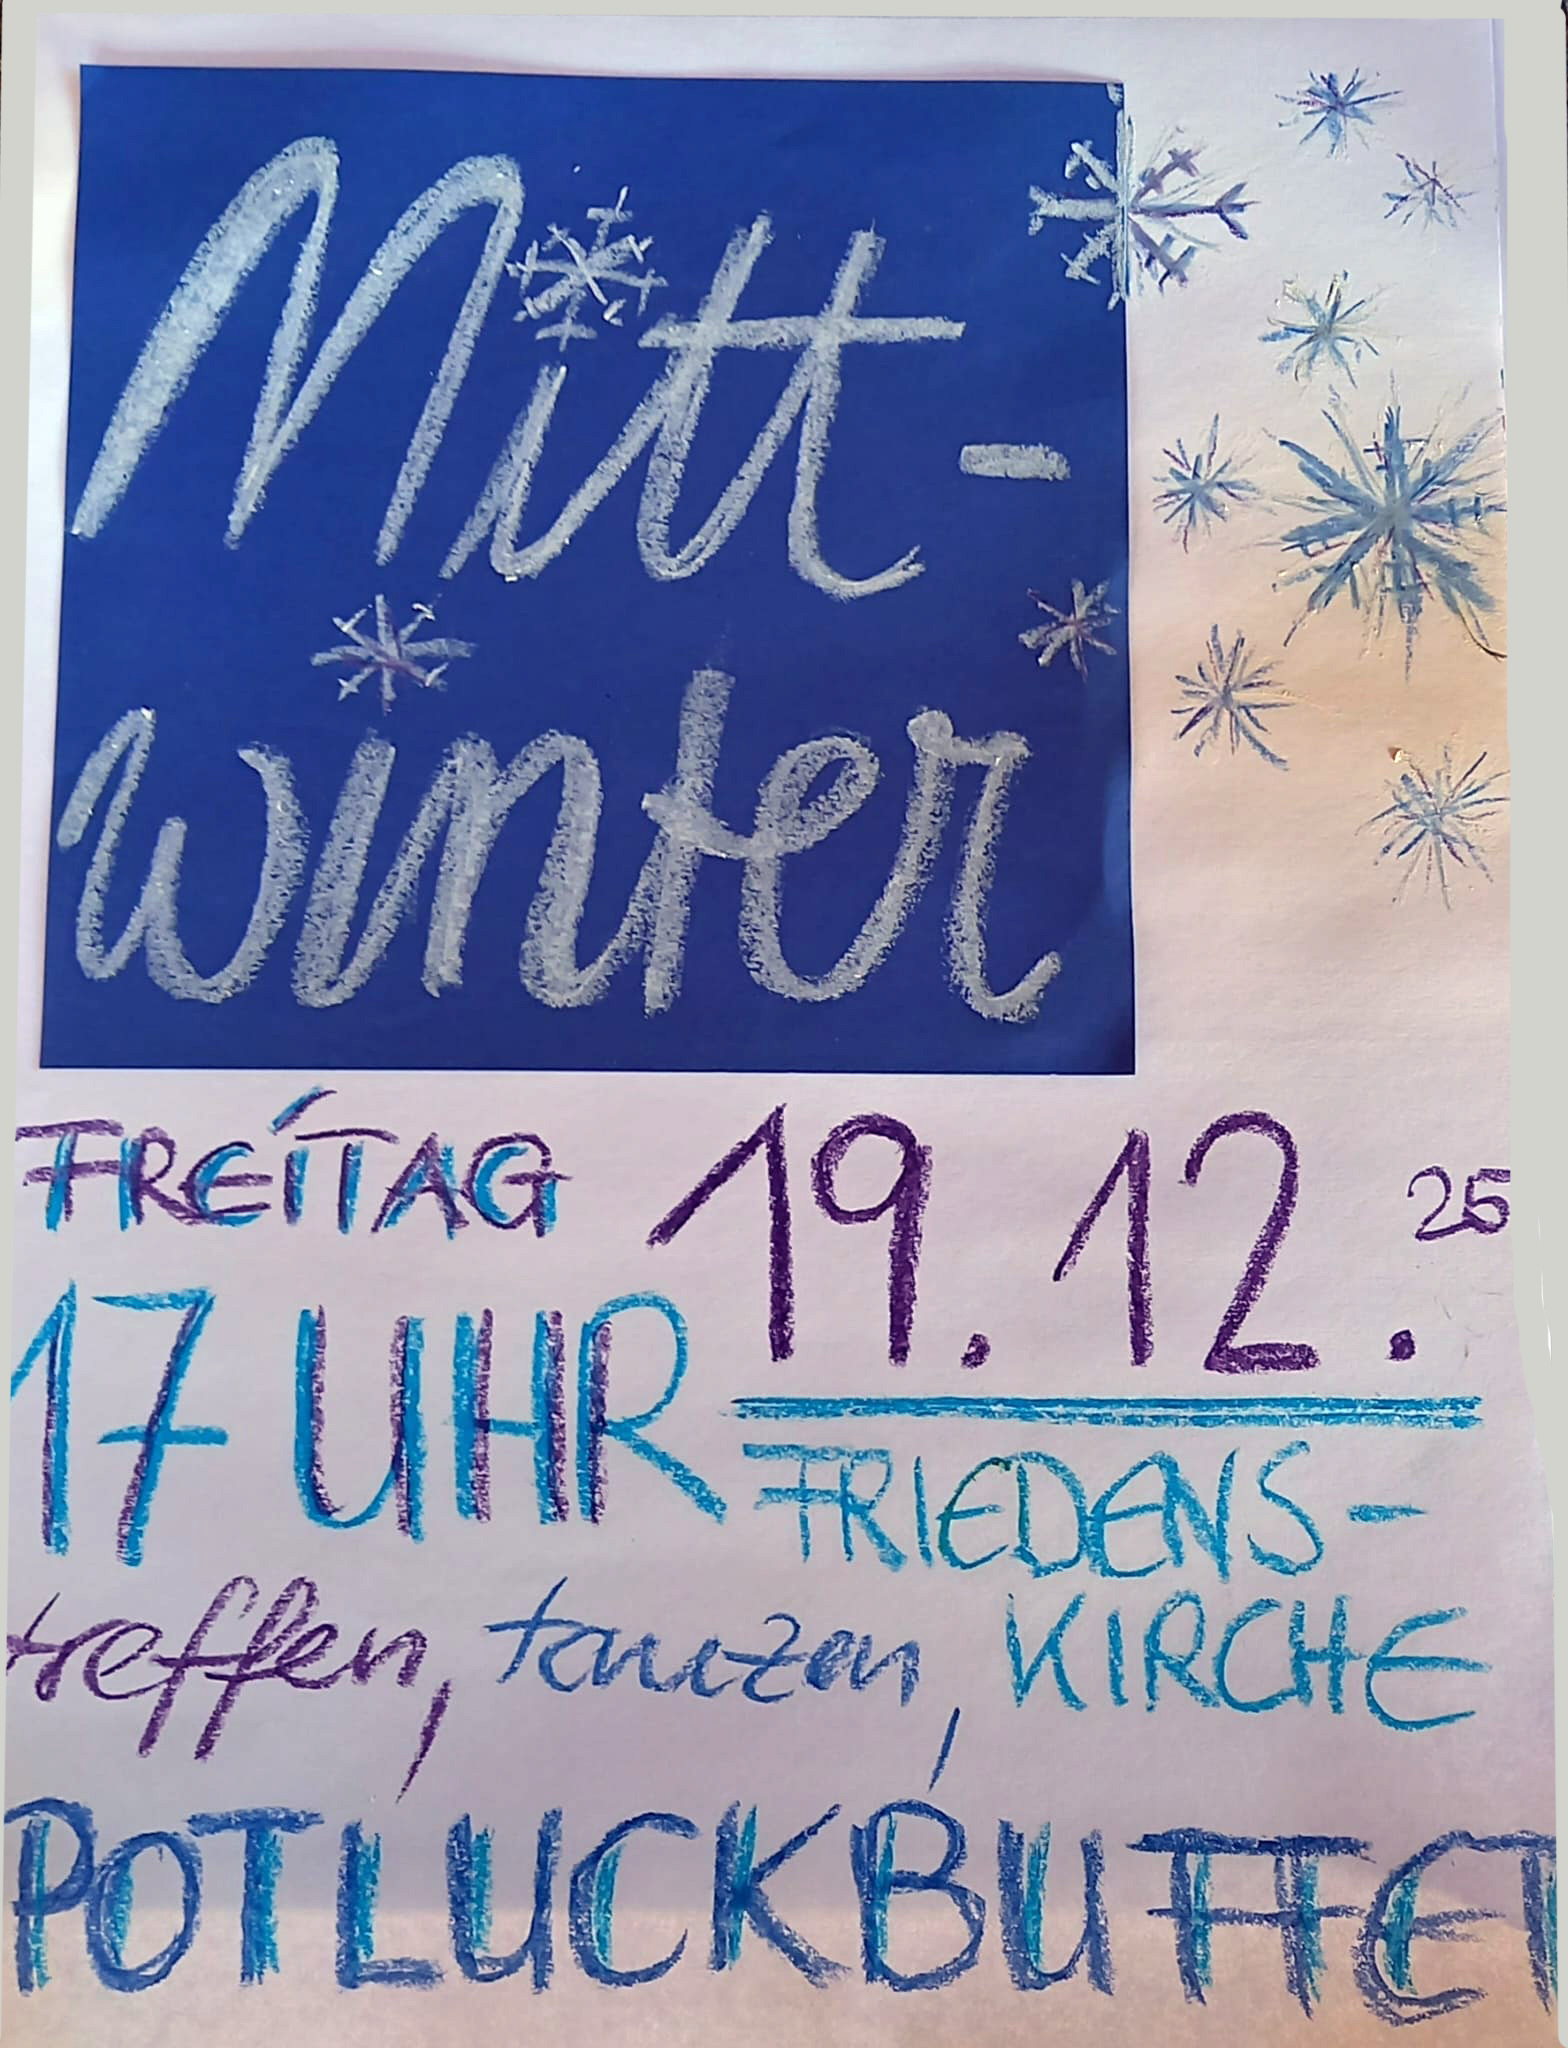 Mitt-
winter
FREITAG 19. 12. 25
17 UHR FRIEDENS-
KIRCHE
treffen, tanzen,
POTLUCKBUFFET